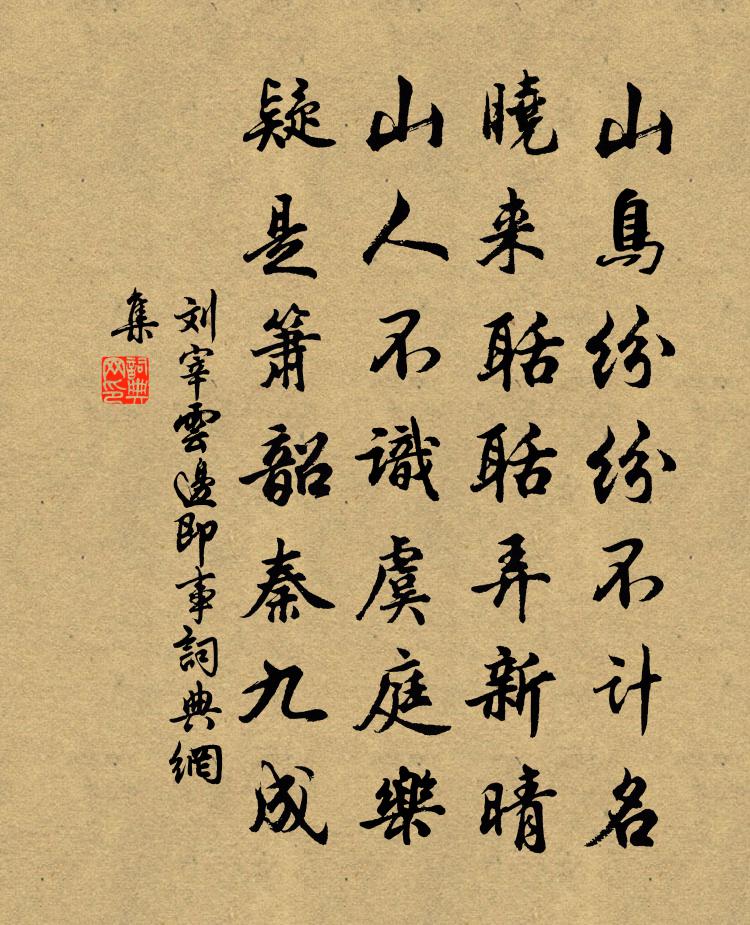 山鳥紛紛不计名
曉来聒聒弄新晴
山人不識虞庭樂
疑是箫韶秦九成
刘宰雲邊即事詞典網
集
詞典
网印